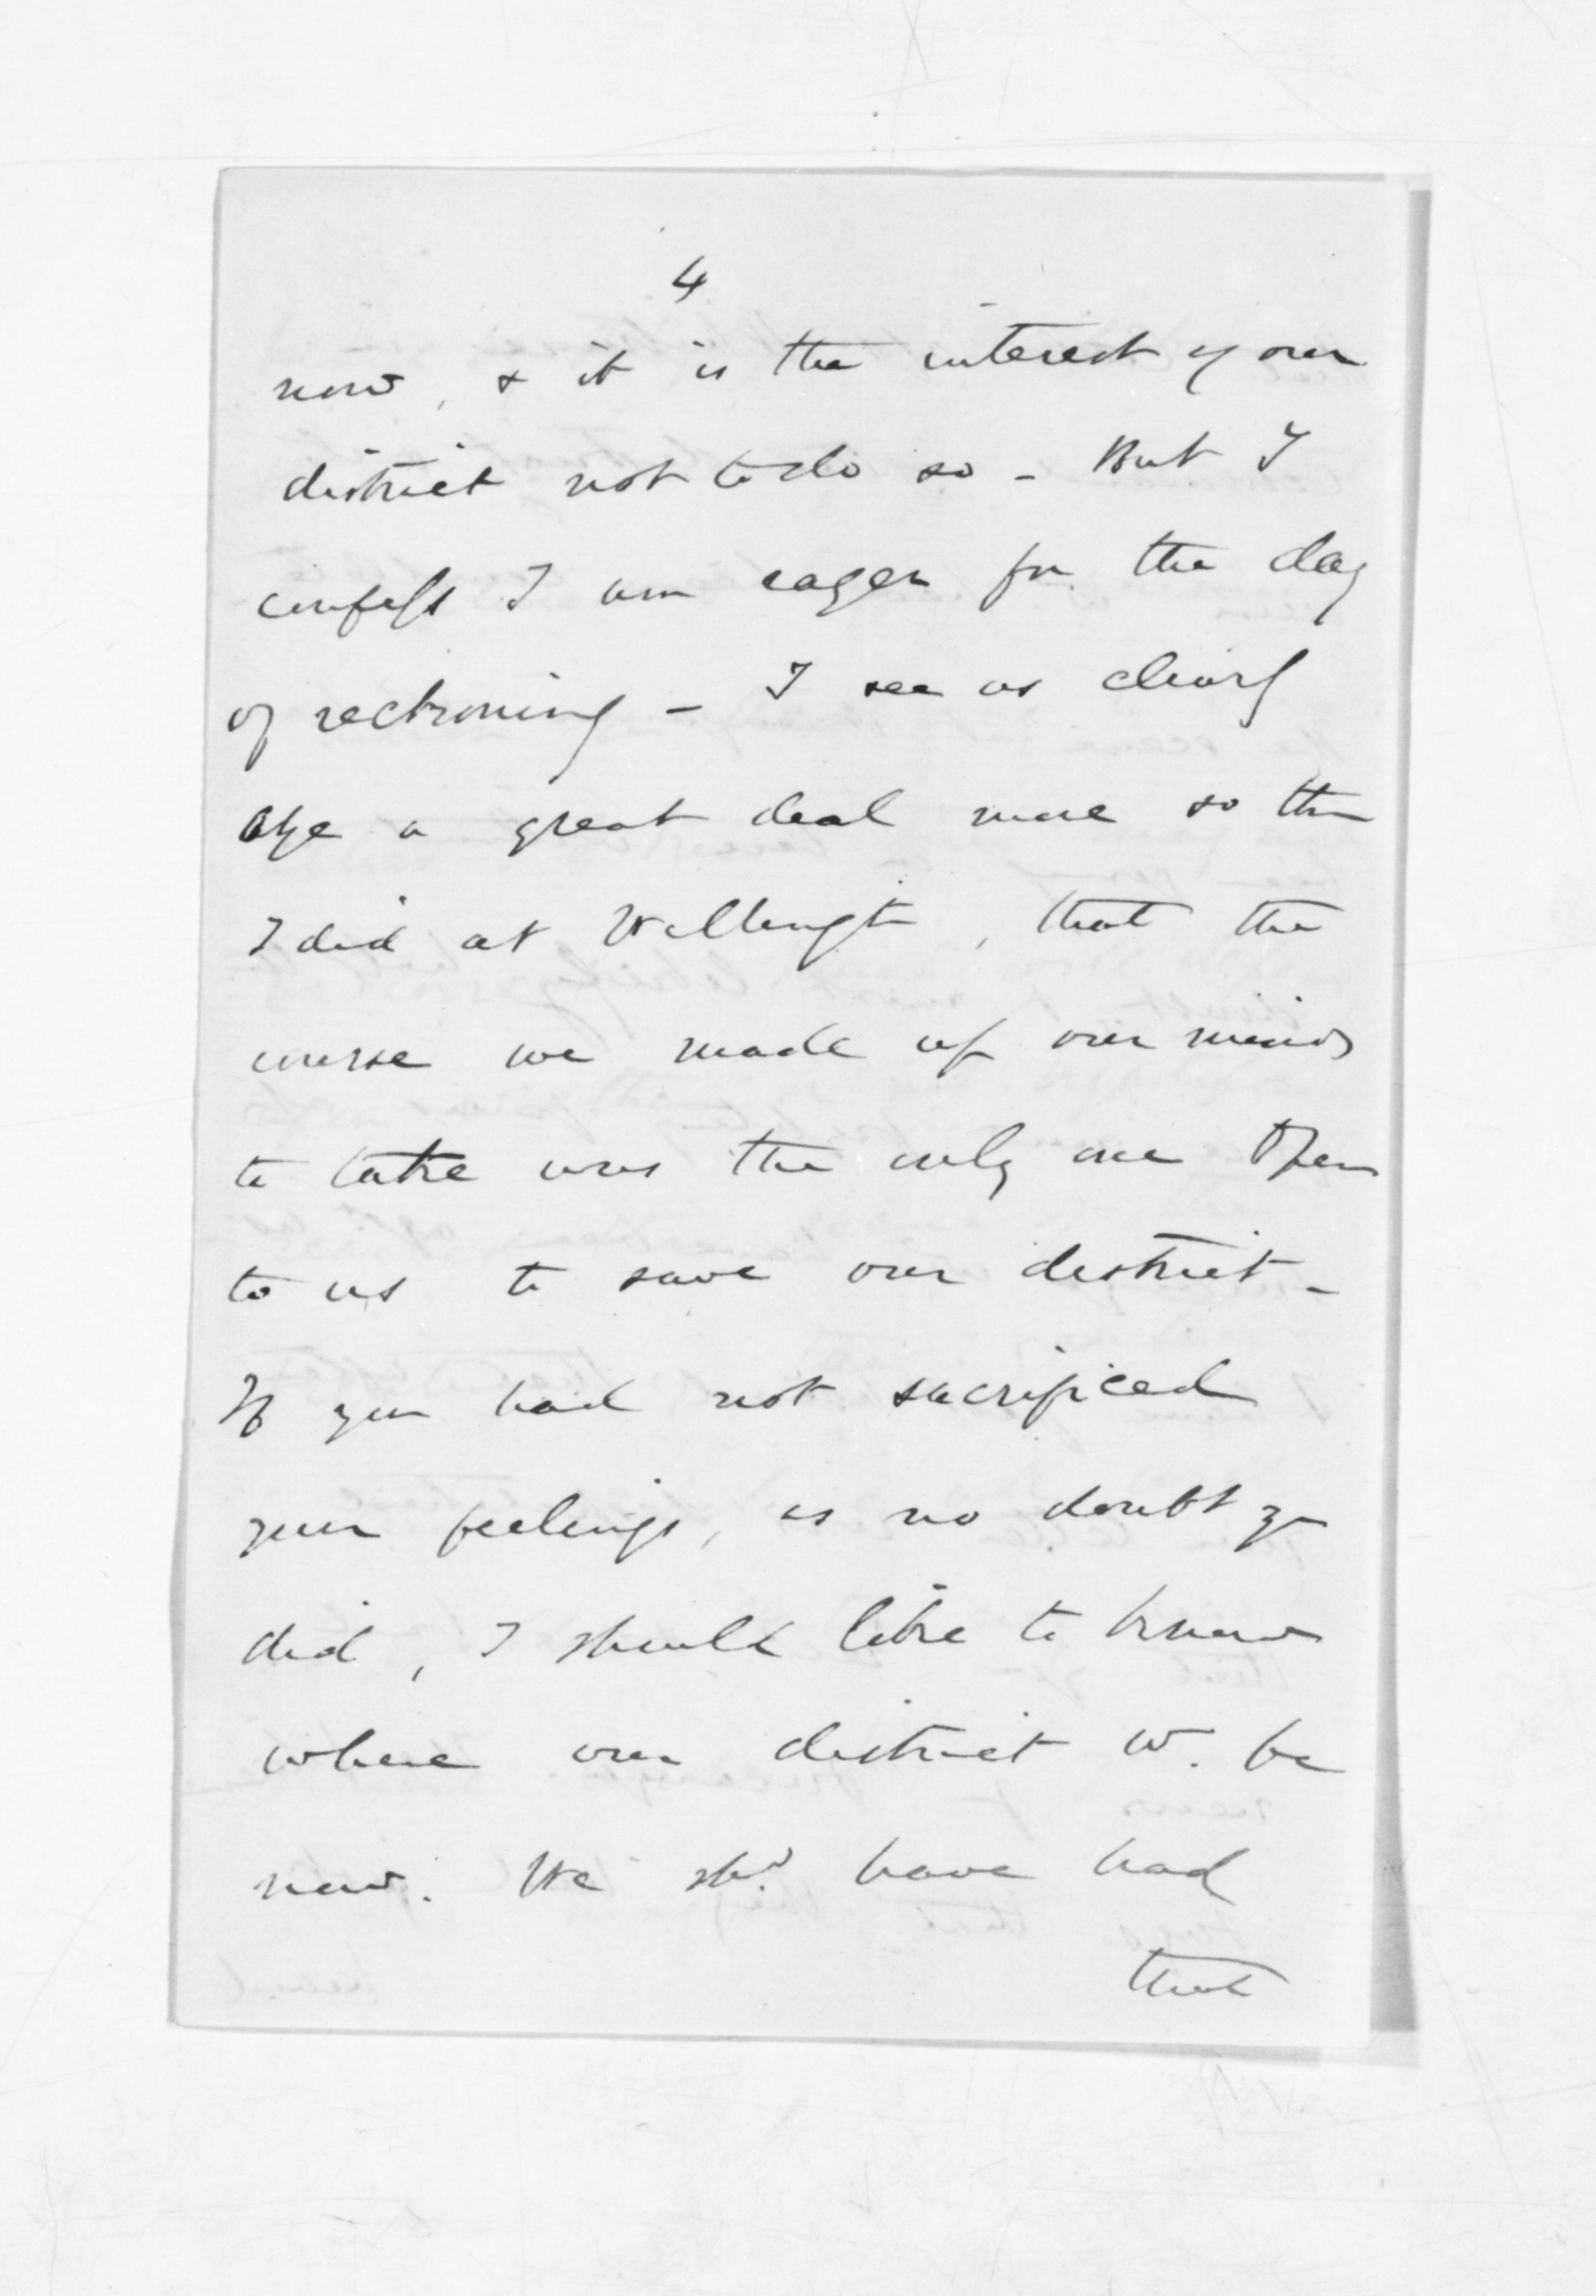 4
now, & it is the interest of our
district not to do so - But I
confess I am eager for the day
of reckoning - I see as clearly
aye a great deal more so than
I did at Wellington, that the
course we made up our minds
to take was the only one open
to us to save our district -
If you had not sacrificed
your feelings, as no doubt you
did, I should like to know
where our district w. be
now. We shd. have had
that